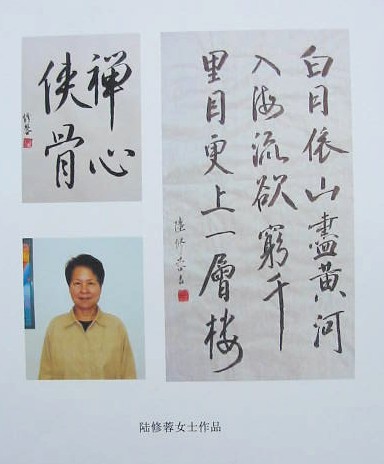 禅心
侠骨
修蓉
白日依山盡黃河
入海流欲窮千
里目更上一層樓
陸修蓉書
陆修蓉女士作品